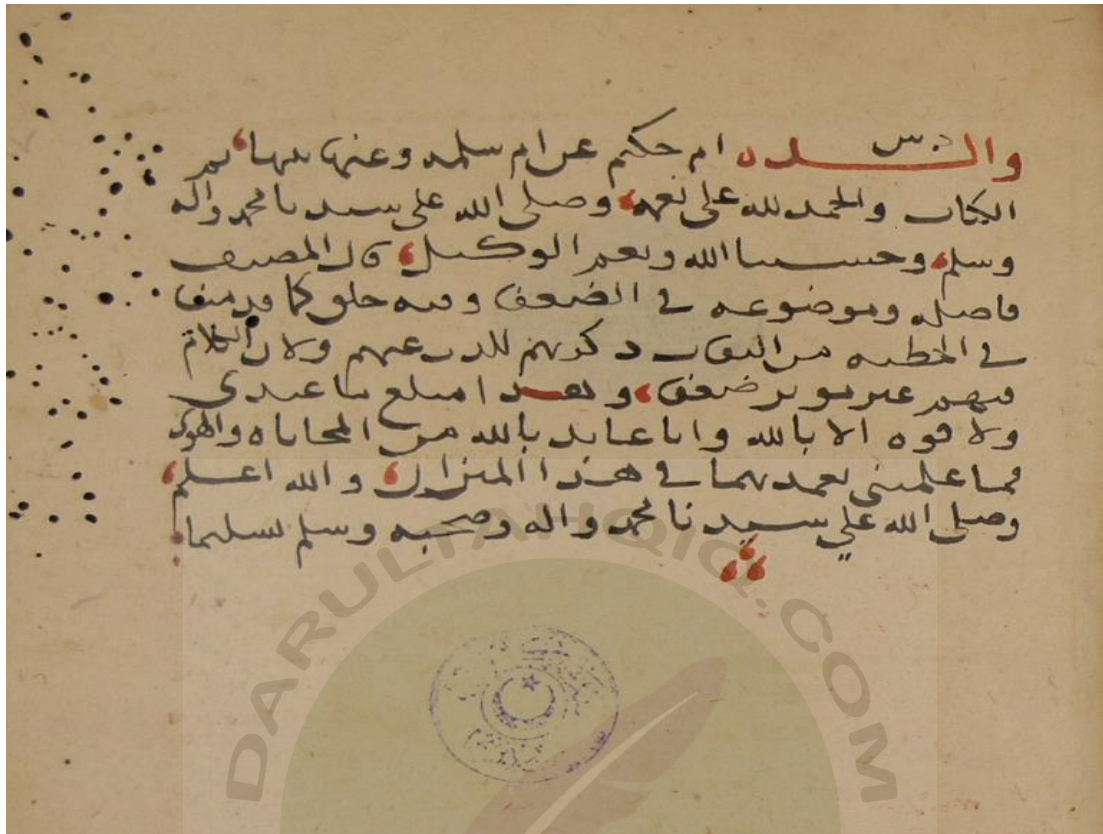 د س
والـــدة ام حكيم عن ام سلمه وعنها بنتها تم
الكتاب والحمد لله على نعمه وصلى الله على سيدنا محمد واله
وسلم وحسبنا الله ونعم الوكيل قال المصنف
فاصله وموضوعه في الضعفا وفيه خلق كما قدمنا
في الخطبه من الثقات ذكرتهم للذب عنهم ولان الكلام
فيهم غير موثر ضعفا وبعد امبلغ ما عندي
ولا قوه الا بالله وانا عايد بالله من المحاباه والهوى
فما علمتني تعمدتهما في هذا الميزان والله اعلم
وصلى الله على سيدنا محمد واله وصحبه وسلم تسليما
DARULTAHQIQ.COM